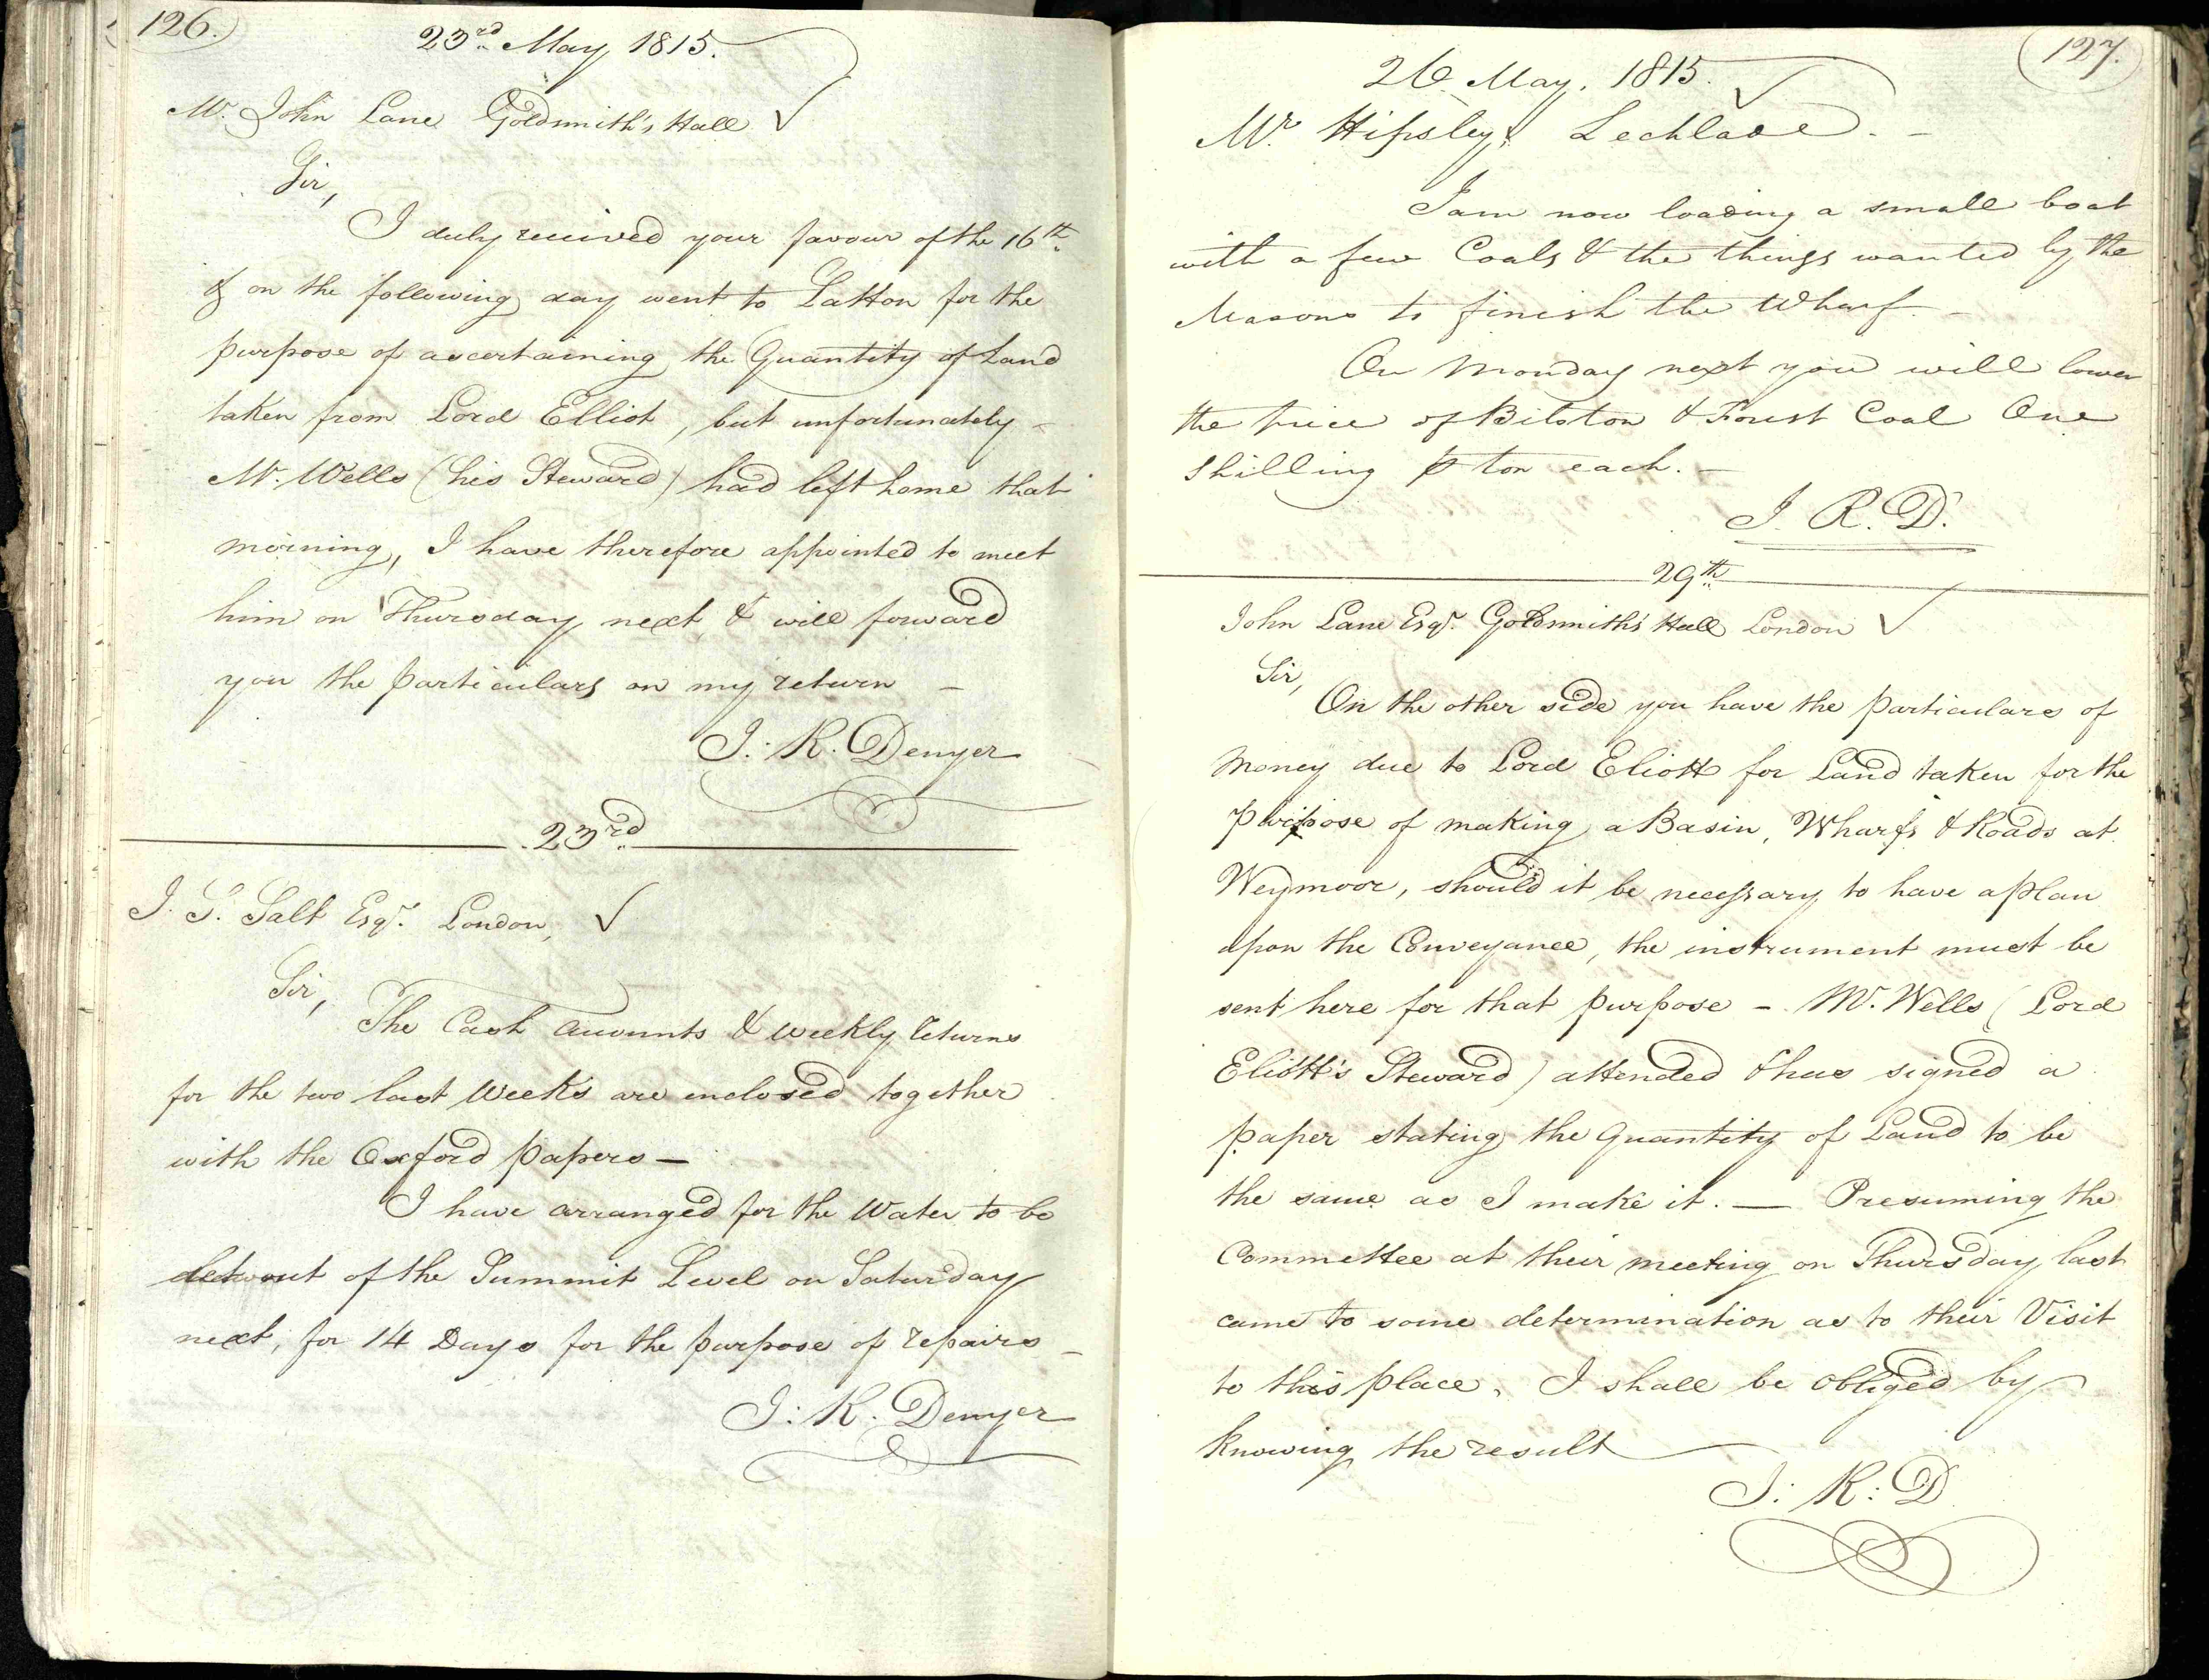 126.
23rd. May 1815.
Mr. John Lane Goldsmith's Hall ✓
Sir,
I duly received your favour of the 16th.
& on the following day went to Latton for the
purpose of ascertaining the Quantity of Land
taken from Lord Elliot, but unfortunately -
Mr. Wells (his Steward) had left home that
morning, I have therefore appointed to meet
him on Thursday next & will forward
you the particulars on my return -
J: R. Denyer
23rd.
J. S. Salt Esqr. London, ✓
Sir,
The Cash Accounts & weekly returns
for the two last Weeks are enclosed together
with the Oxford papers -
I have arranged for the Water to be
let out of the Summit Level on Saturday
next, for 14 Days for the purpose of repairs -
J: R. Denyer
127.
26. May. 1815. ✓
Mr. Hipsley, Lechlade. -
I am now loading a small boat
with a few Coals & the things wanted by the
Masons to finish the Wharf. -
On Monday next you will lower
the price of Bilston & Forest Coal One
Shilling p ton each. -
J. R. D.
29th.
John Lane Esqr. Goldsmith's Hall London ✓
Sir,
On the other side you have the particulars of
Money due to Lord Eliott for Land taken for the
purpose of making a Basin, Wharfs & Roads at
Weymoor, should it be necessary to have a plan
upon the Conveyance, the instrument must be
sent here for that purpose - Mr. Wells (Lord
Eliott's Steward) attended & has signed a
paper stating the Quantity of Land to be
the same as I make it. — Presuming the
Committee at their meeting on Thursday last
came to some determination as to their Visit
to this place, I shall be obliged by
knowing the result
J: R: D